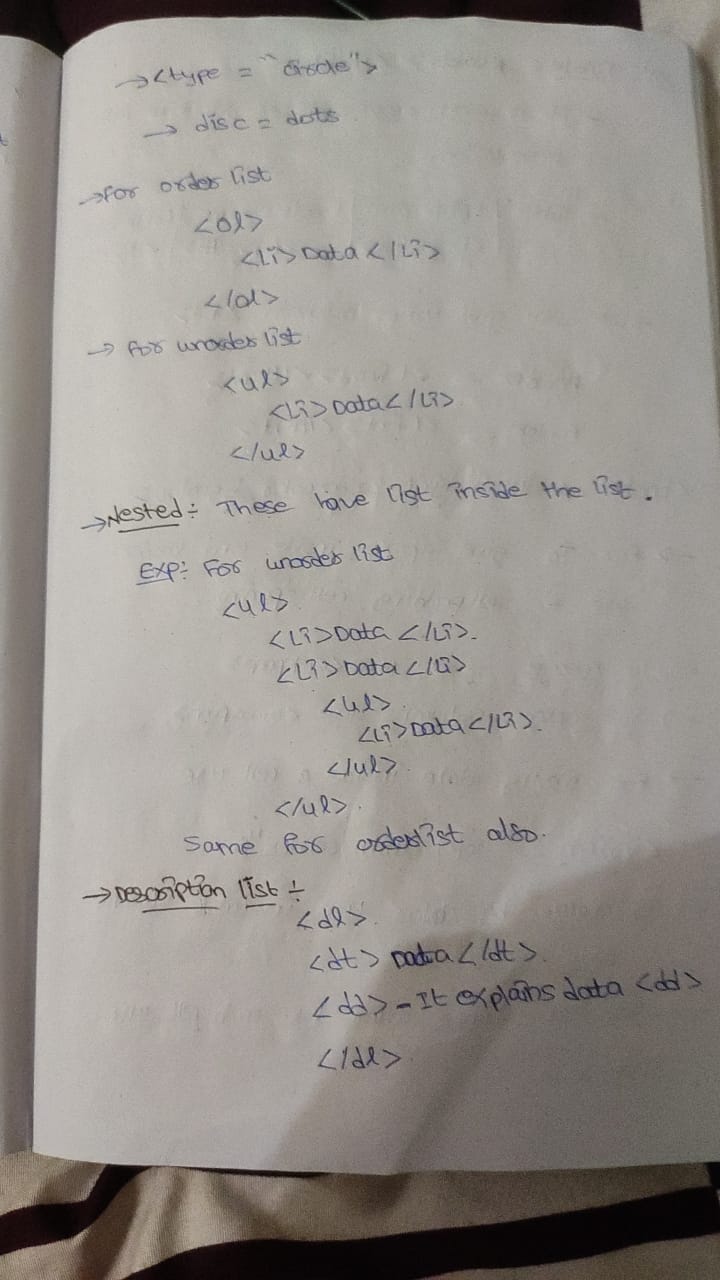 → <type = "circle">
→ disc = dots
→ for order list
<ol>
<li> Data </li>
</ol>
→ for unorder list
<ul>
<li> Data </li>
</ul>
→ Nested :- These have list inside the list.
Exp:- For unorder list
<ul>
<li> Data </li>.
<li> Data </li>
<ul>
<li> Data </li>.
</ul>
</ul>.
Same for orderlist also.
→ Description list :-
<dl>
<dt> Data </dt>.
<dd> - It explains data <dd>
</dl>